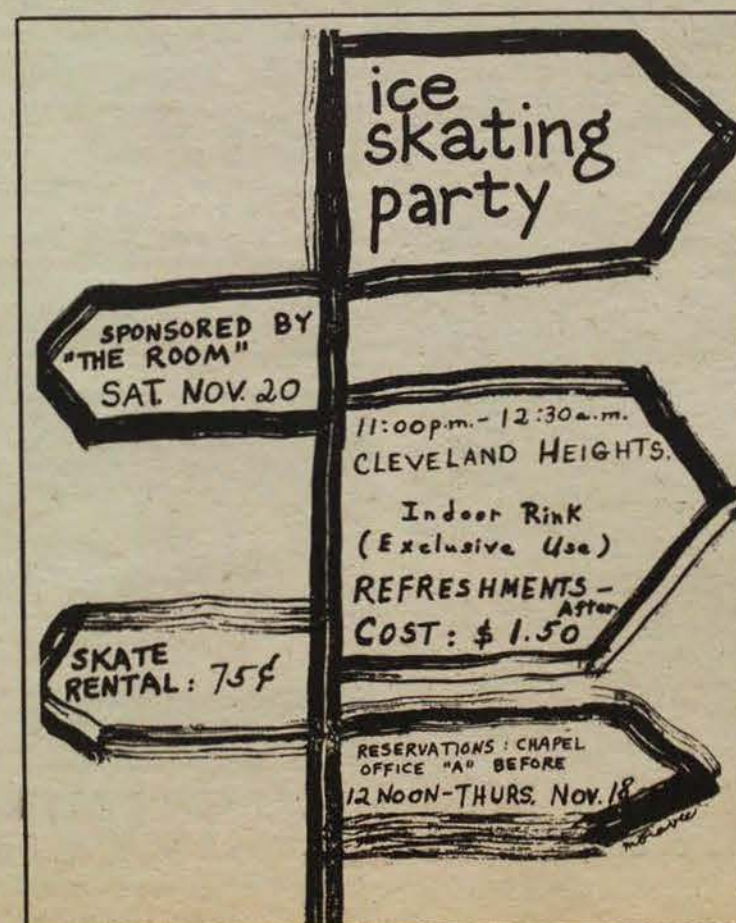 ice
skating
party
SPONSORED BY
"THE ROOM"
SAT. NOV. 20
11:00p.m. - 12:30a.m.
CLEVELAND HEIGHTS.
Indoor Rink
(Exclusive Use)
REFRESHMENTS -
After
COST: $1.50
SKATE
RENTAL: 75¢
RESERVATIONS: CHAPEL
OFFICE "A" BEFORE
12 NOON-THURS. NOV. 18